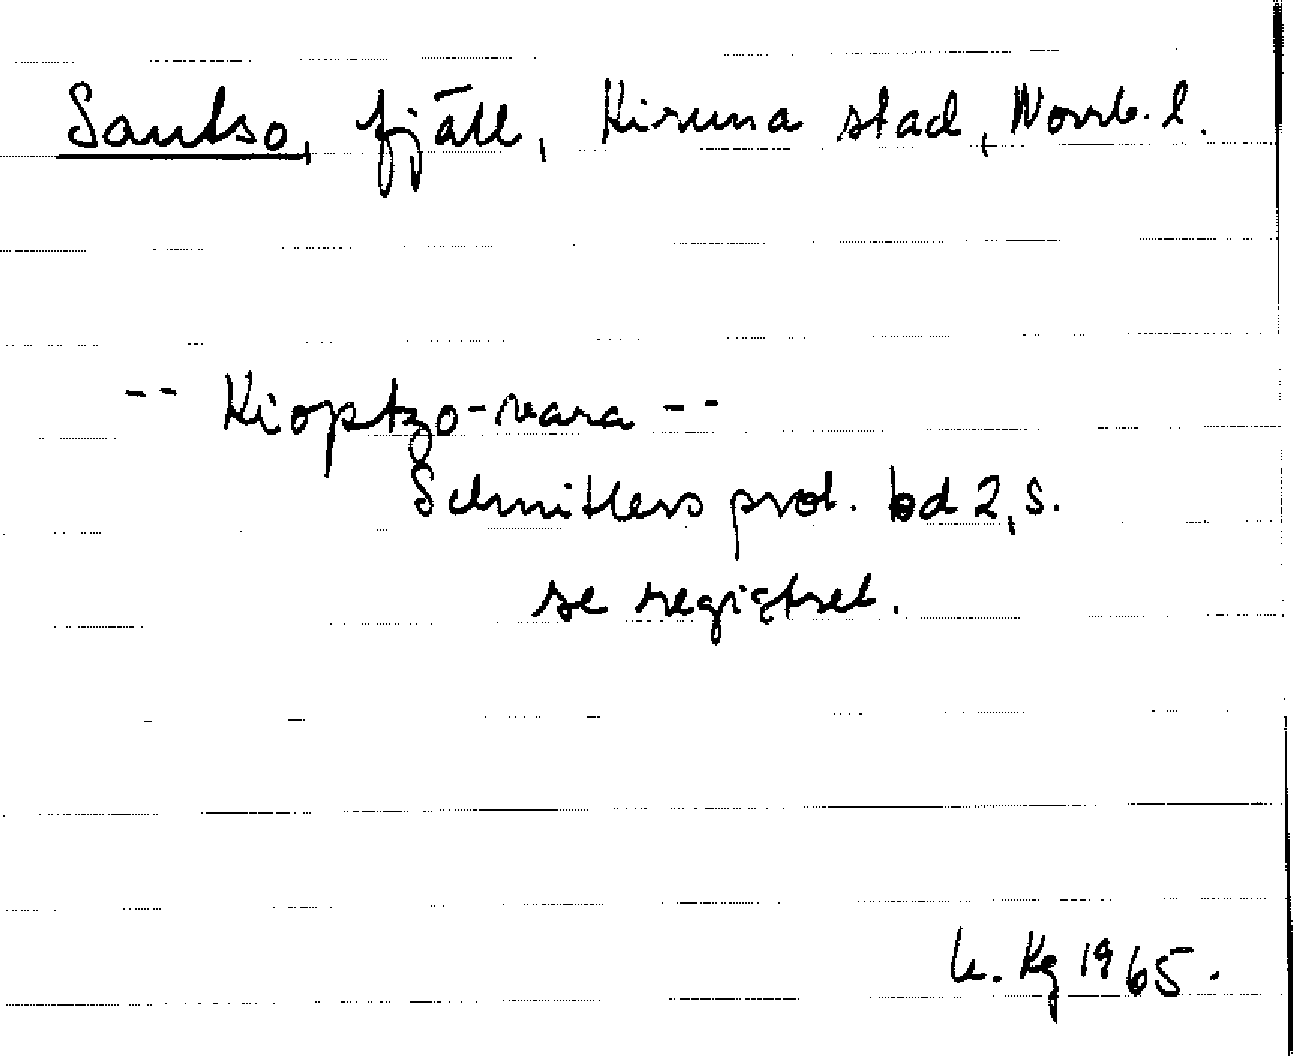 Sautso, fjäll, Kiruna stad, Norrb. l.
-- Kioptzo-vara --
Schnitlers prot. bd 2, s.
se registret.
K. Kg 1965.